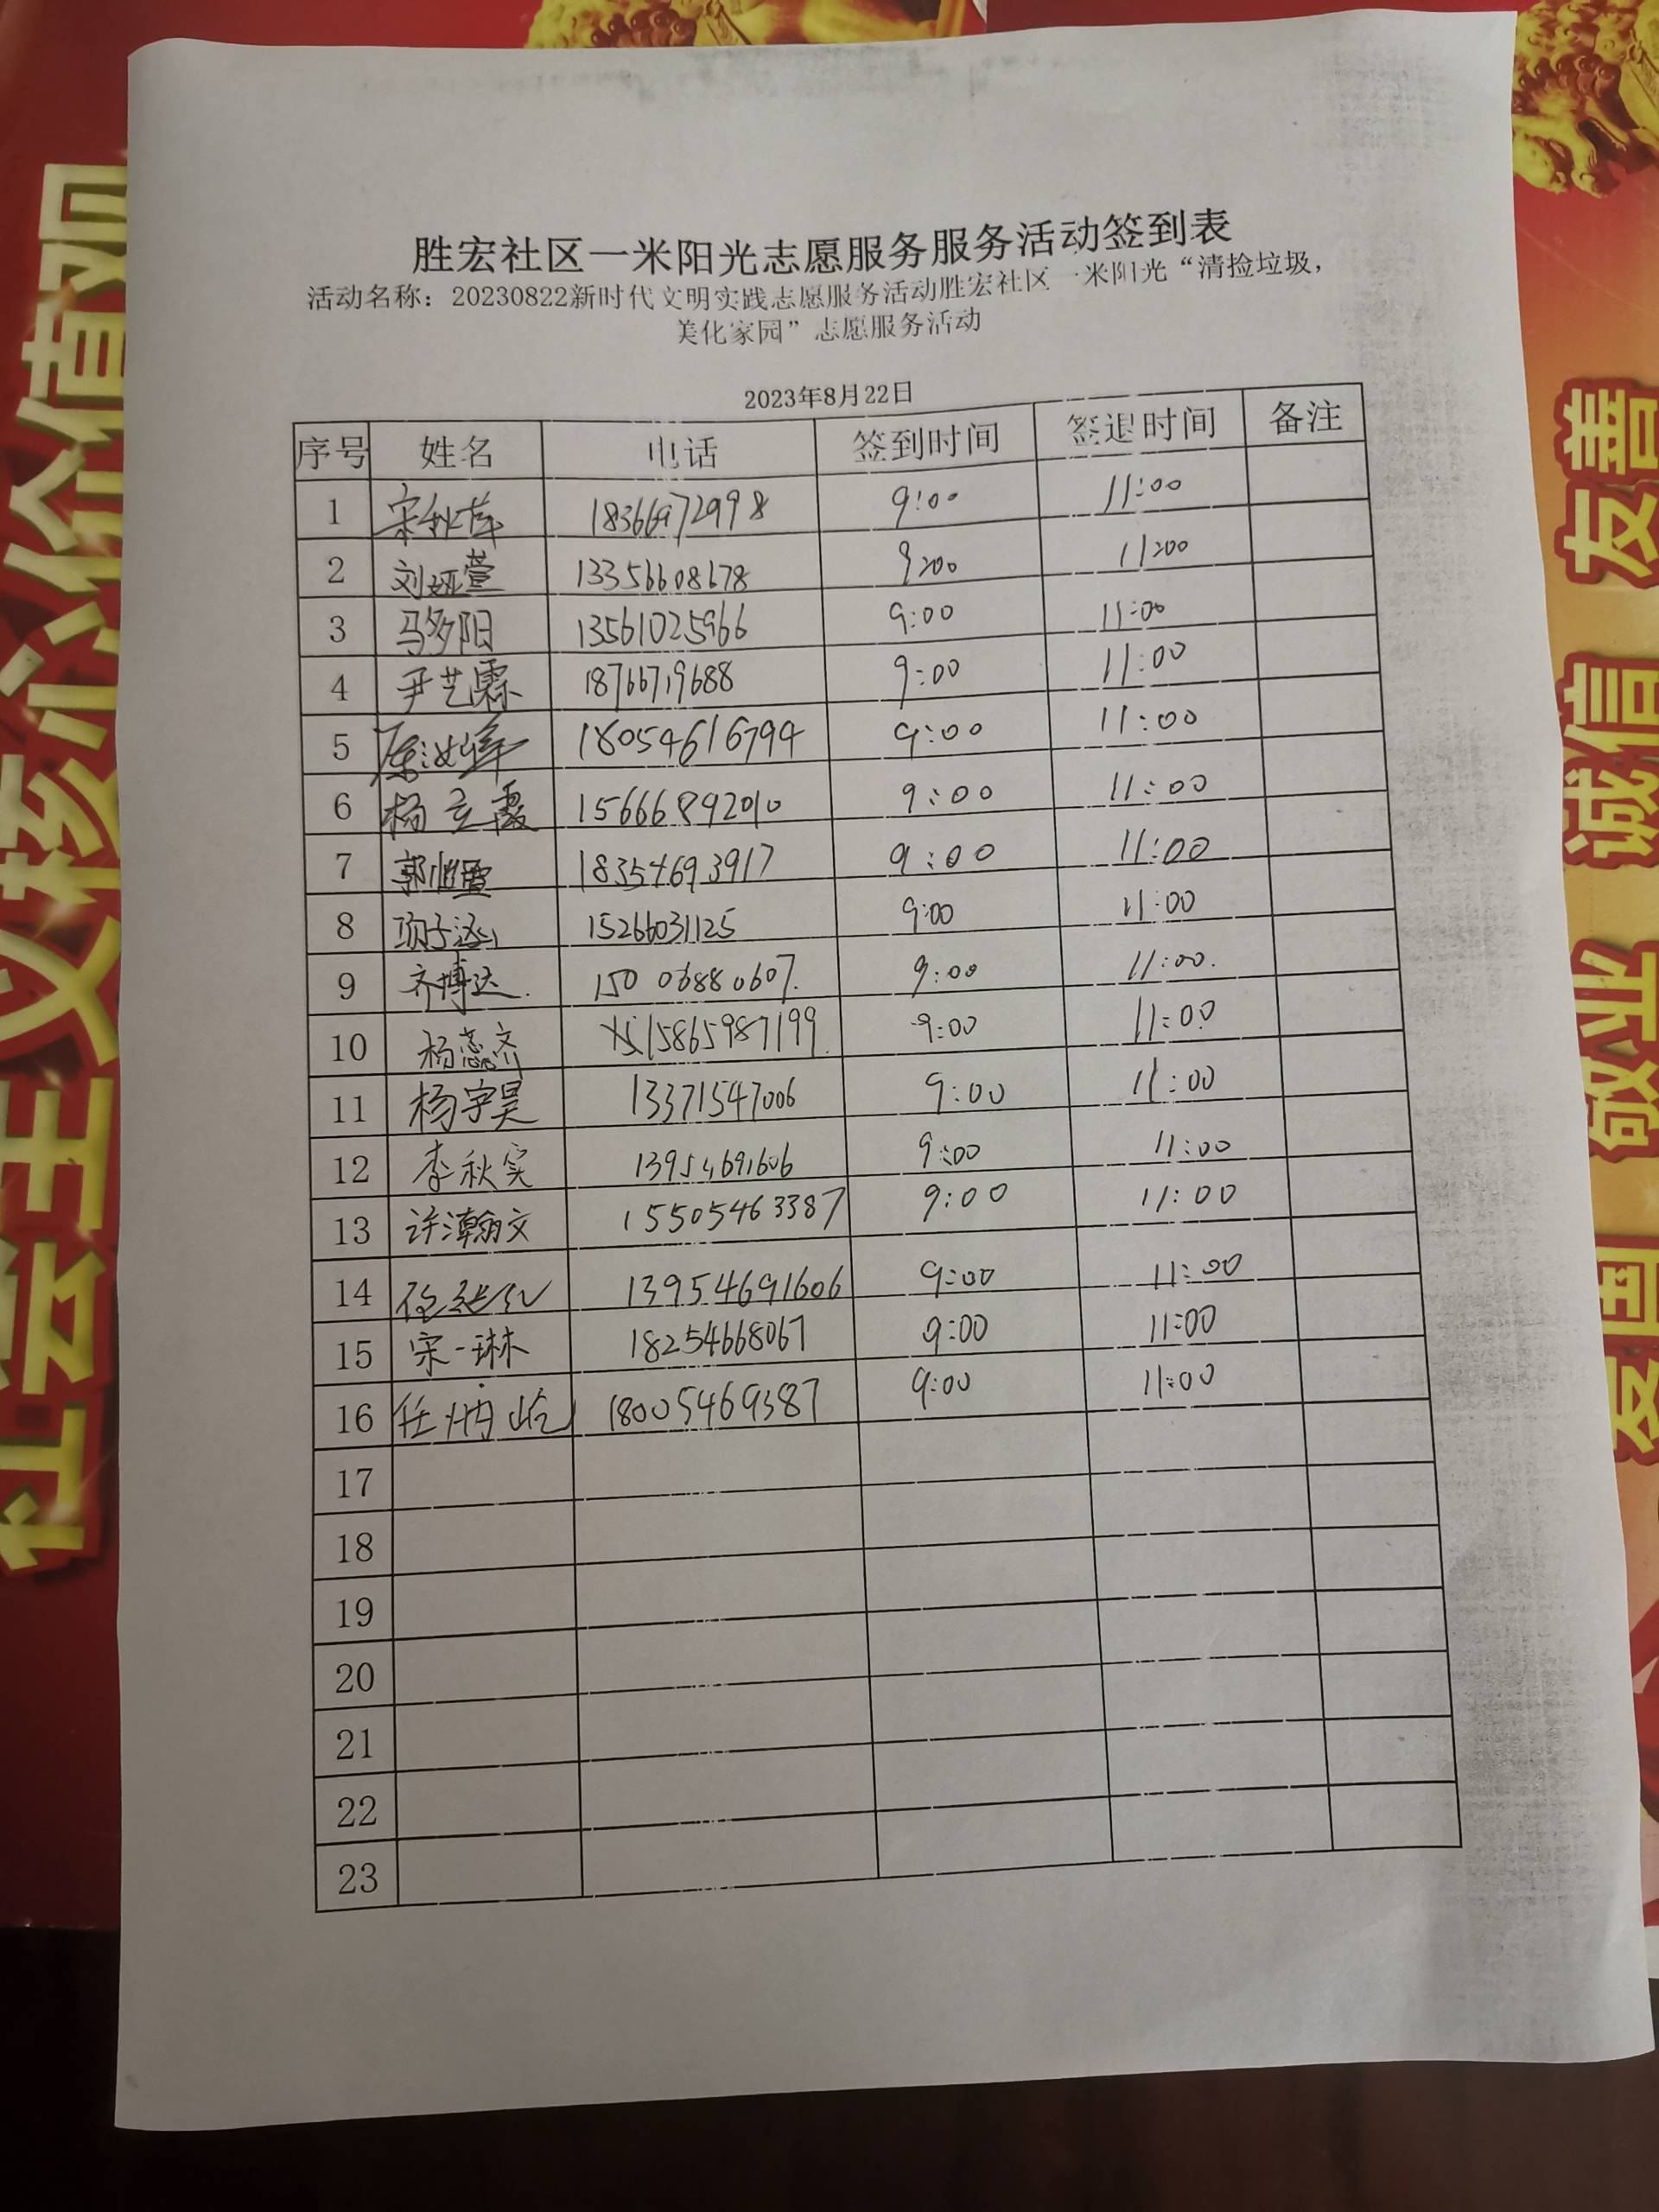 胜宏社区一米阳光志愿服务服务活动签到表
活动名称：20230822新时代文明实践志愿服务活动胜宏社区一米阳光“清捡垃圾，
美化家园”志愿服务活动
2023年8月22日
序号 姓名 电话 签到时间 签退时间 备注
1 18366972998 9:00 11:00
2 刘娅萱 13356608678 9:00 11:00
3 马多阳 13561025966 9:00 11:00
4 尹艺霖 18766719688 9:00 11:00
5 18054616794 9:00 11:00
6 杨立霞 9:00 11:00
7 18354693917 9:00 11:00
8 15266031125 9:00 11:00
9 齐博达. 15006880607. 9:00 11:00.
10 杨蕊齐 15865987199 9:00 11:00
11 杨宇昊 13371547006 9:00 11:00
12 李秋实 13954691606 9:00 11:00
13 许瀚文 15505463387 9:00 11:00
14 13954691606 9:00 11:00
15 宋一琳 18254668067 9:00 11:00
16 18005469387 9:00 11:00
17
18
19
20
21
22
23
社会主义核心价值观
爱国 敬业 诚信 友善